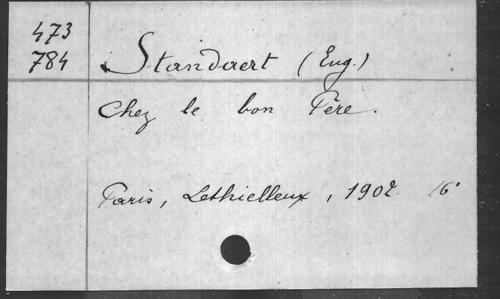 473
784
Standaert (Eug.)
Chez le bon Père.
Paris, Lethielleux, 1902. 16°